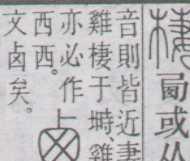 棲
或从
音則皆近妻
雞棲于塒雞
亦必作
西西。
文卥矣。